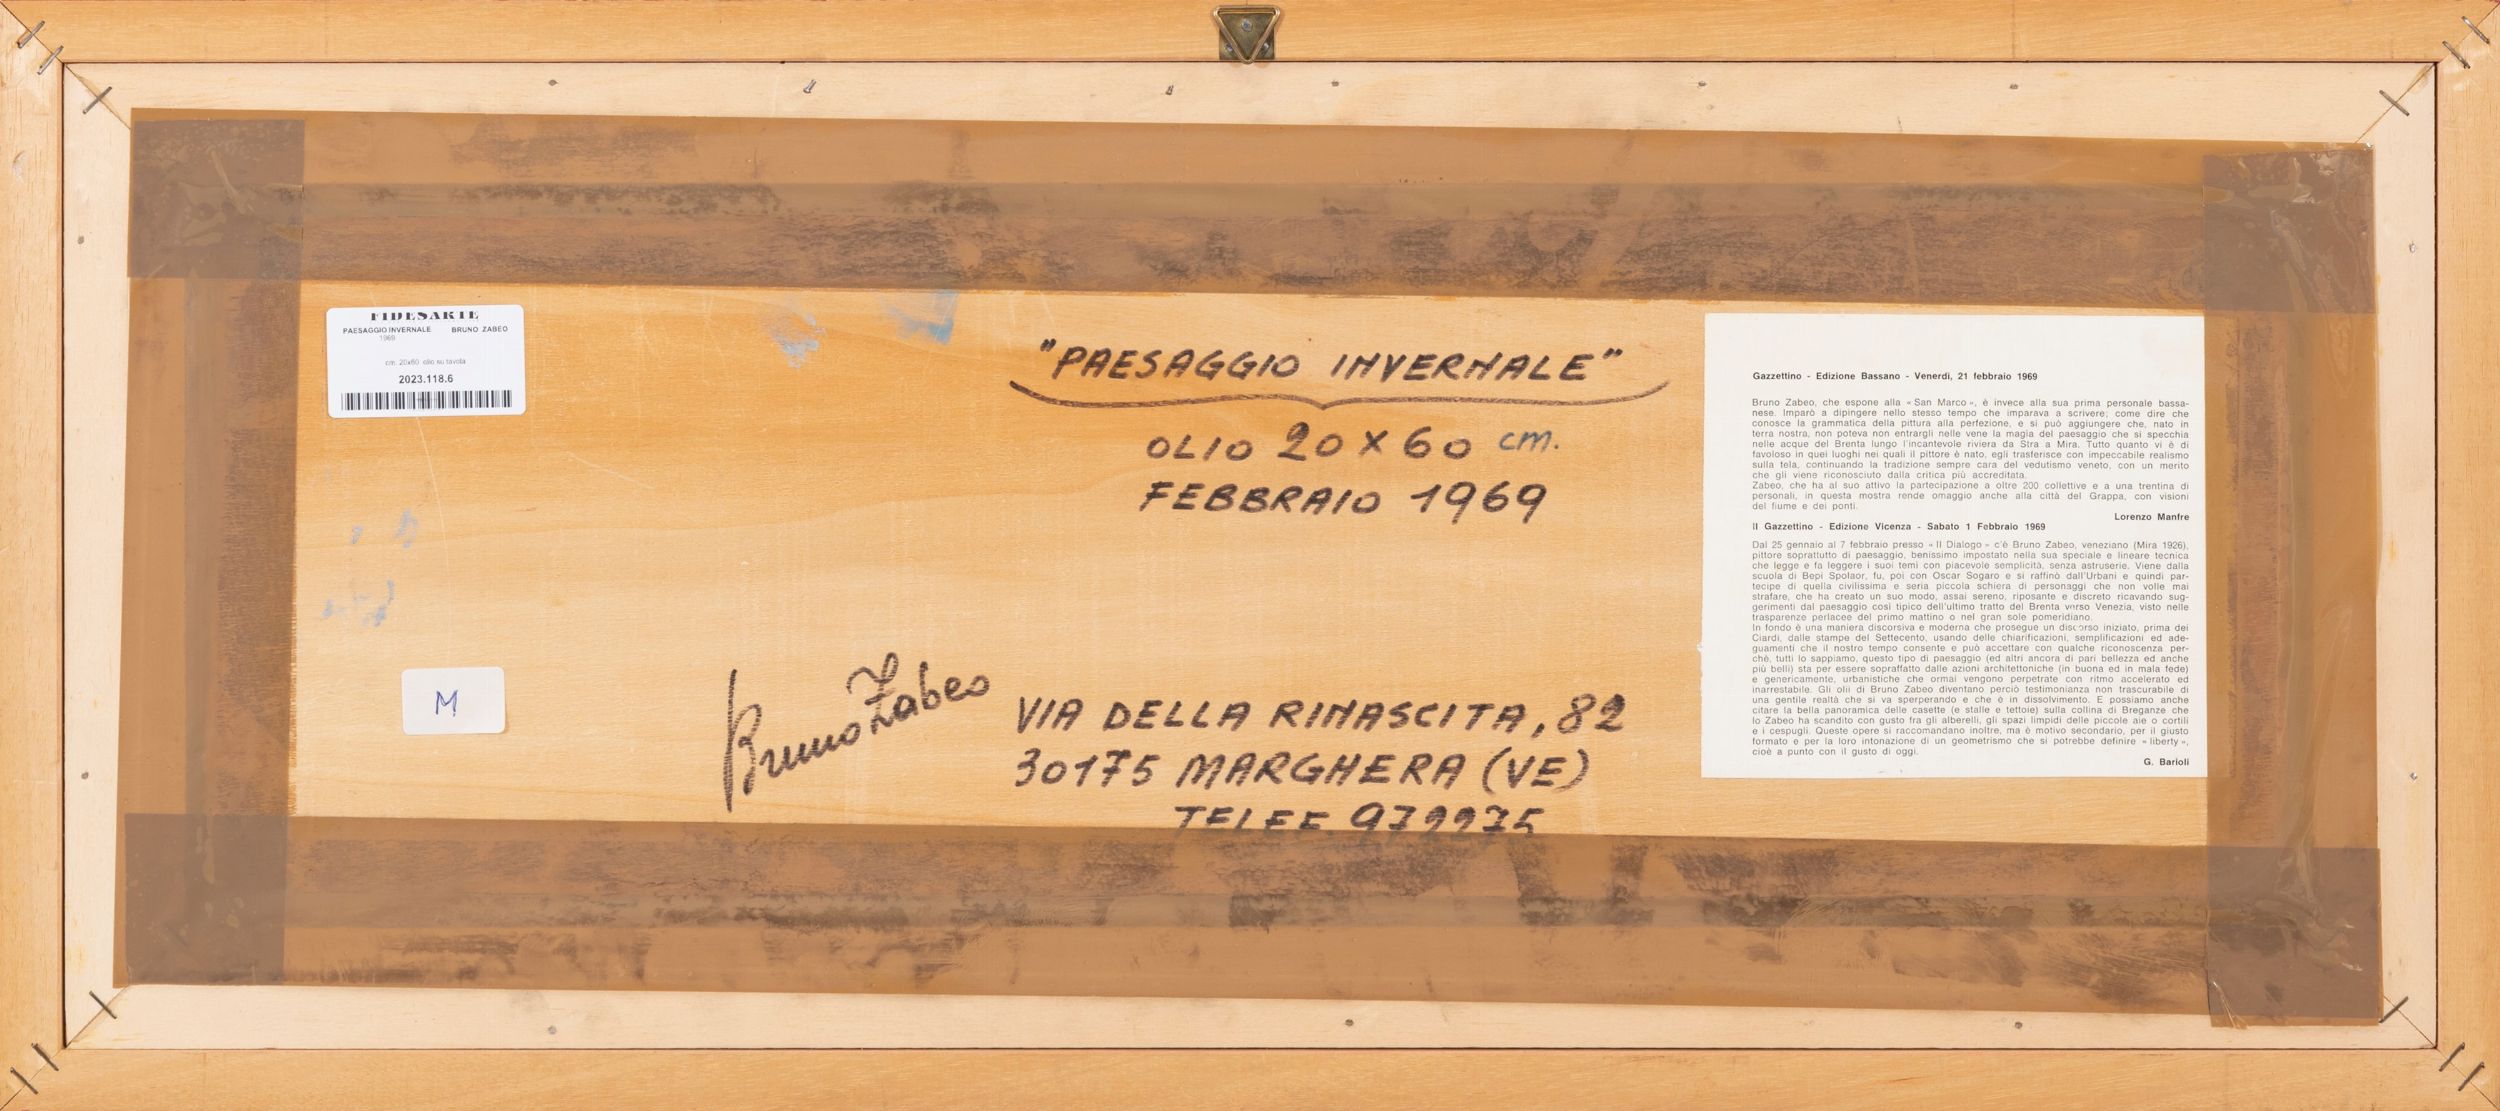 FIDESARTE
PAESAGGIO INVERNALE BRUNO ZABEO
1969
cm. 20x60 olio su tavola
2023.118.6
M
"PAESAGGIO INVERNALE"
OLIO 20 X 60 cm.
FEBBRAIO 1969
Bruno Zabeo
VIA DELLA RINASCITA, 82
30175 MARGHERA (VE)
TELEF. 972275
Gazzettino - Edizione Bassano - Venerdi, 21 febbraio 1969
Bruno Zabeo, che espone alla « San Marco », è invece alla sua prima personale bassa-
nese. Imparò a dipingere nello stesso tempo che imparava a scrivere; come dire che
conosce la grammatica della pittura alla perfezione, e si può aggiungere che, nato in
terra nostra, non poteva non entrargli nelle vene la magia del paesaggio che si specchia
nelle acque del Brenta lungo l'incantevole riviera da Stra a Mira. Tutto quanto vi è di
favoloso in quei luoghi nei quali il pittore è nato, egli trasferisce con impeccabile realismo
sulla tela, continuando la tradizione sempre cara del vedutismo veneto, con un merito
che gli viene riconosciuto dalla critica più accreditata.
Zabeo, che ha al suo attivo la partecipazione a oltre 200 collettive e a una trentina di
personali, in questa mostra rende omaggio anche alla città del Grappa, con visioni
del fiume e dei ponti.
Lorenzo Manfre
Il Gazzettino - Edizione Vicenza - Sabato 1 Febbraio 1969
Dal 25 gennaio al 7 febbraio presso « Il Dialogo » c'è Bruno Zabeo, veneziano (Mira 1926),
pittore soprattutto di paesaggio, benissimo impostato nella sua speciale e lineare tecnica
che legge e fa leggere i suoi temi con piacevole semplicità, senza astruserie. Viene dalla
scuola di Bepi Spolaor, fu, poi con Oscar Sogaro e si raffinò dall'Urbani e quindi par-
tecipe di quella civilissima e seria piccola schiera di personaggi che non volle mai
strafare, che ha creato un suo modo, assai sereno, riposante e discreto ricavando sug-
gerimenti dal paesaggio così tipico dell'ultimo tratto del Brenta verso Venezia, visto nelle
trasparenze perlacee del primo mattino o nel gran sole pomeridiano.
In fondo è una maniera discorsiva e moderna che prosegue un discorso iniziato, prima dei
Ciardi, dalle stampe del Settecento, usando delle chiarificazioni, semplificazioni ed ade-
guamenti che il nostro tempo consente e può accettare con qualche riconoscenza per-
chè, tutti lo sappiamo, questo tipo di paesaggio (ed altri ancora di pari bellezza ed anche
più belli) sta per essere sopraffatto dalle azioni architettoniche (in buona ed in mala fede)
e genericamente, urbanistiche che ormai vengono perpetrate con ritmo accelerato ed
inarrestabile. Gli olii di Bruno Zabeo diventano perciò testimonianza non trascurabile di
una gentile realtà che si va sperperando e che è in dissolvimento. E possiamo anche
citare la bella panoramica delle casette (e stalle e tettoie) sulla collina di Breganze che
lo Zabeo ha scandito con gusto fra gli alberelli, gli spazi limpidi delle piccole aie o cortili
e i cespugli. Queste opere si raccomandano inoltre, ma è motivo secondario, per il giusto
formato e per la loro intonazione di un geometrismo che si potrebbe definire « liberty »,
cioè a punto con il gusto di oggi.
G. Barioli